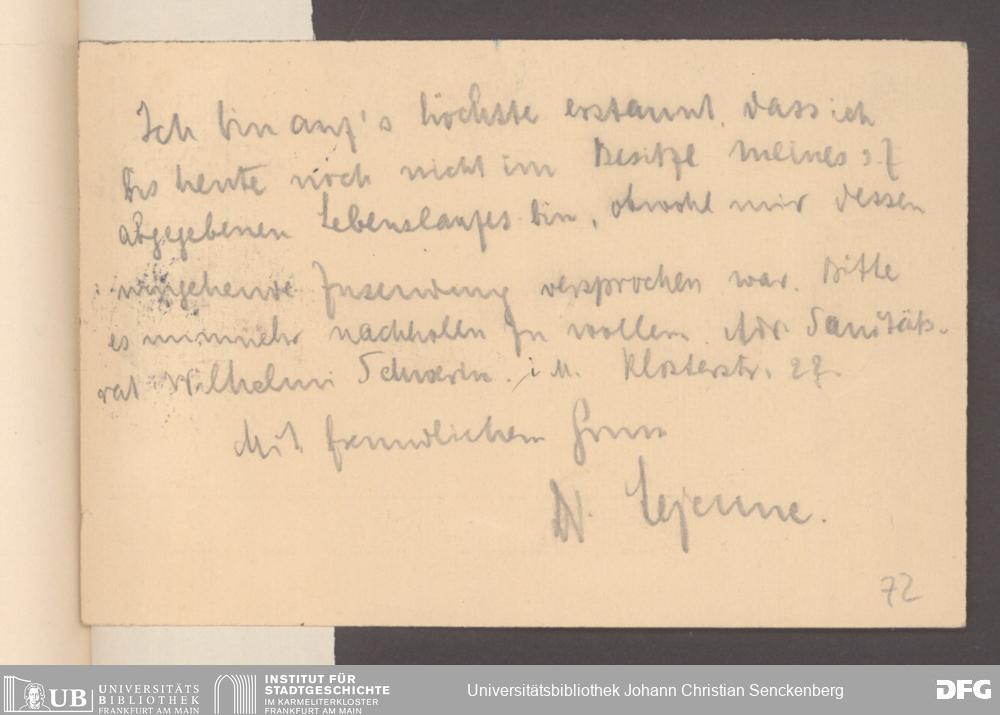 Ich bin auf's höchste erstaunt, dass ich
bis heute noch nicht im Besitze meines s. Z
abgegebenen Lebenslaufes bin, obwohl mir dessen
umgehende Zusendung versprochen war. Bitte
es nunmehr nachholen zu wollen. Adr. Sanitäts-
rat Wilhelmi Schwerin. i M. Klosterstr. 22.
Mit freundlichem Gruss
Dr. Lejeune.
72
UB UNIVERSITÄTS
BIBLIOTHEK
FRANKFURT AM MAIN
INSTITUT FÜR
STADTGESCHICHTE
IM KARMELITERKLOSTER
FRANKFURT AM MAIN
Universitätsbibliothek Johann Christian Senckenberg
DFG